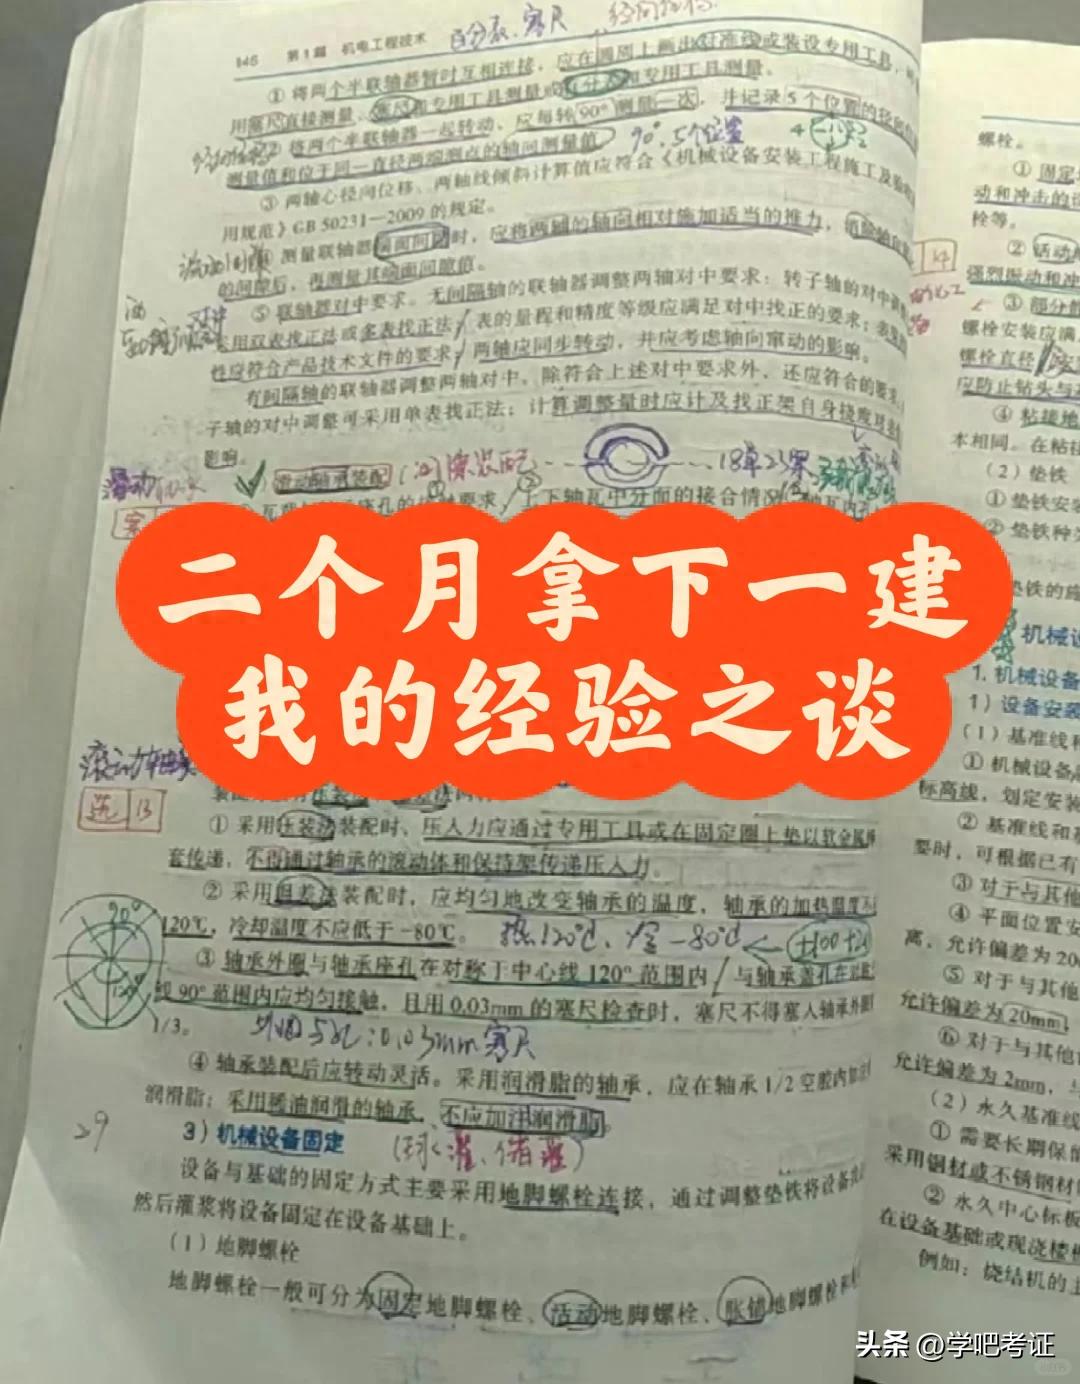 146 第1篇 机电工程技术
百分表、塞尺
① 将两个半联轴器暂时互相连接，应在圆周上画出对准线或装设专用工具，
用塞尺直接测量、塞尺和专用工具测量或百分表和专用工具测量。
② 将两个半联轴器一起转动，应每转90°测量一次，并记录5个位置的径向
90°、5个位置
测量值和位于同一直径两端测点的轴向测量值
③ 两轴心径向位移、两轴线倾斜计算值应符合《机械设备安装工程施工及验
用规范》GB 50231—2009 的规定。
④ 测量联轴器端面间隙时，应将两轴的轴向相对施加适当的推力，消除轴向
的间隙后，再测量其端面间隙值。
⑤ 联轴器对中要求。无间隔轴的联轴器调整两轴对中要求：转子轴的对中调
采用双表找正法或多表找正法，表的量程和精度等级应满足对中找正的要求；
性应符合产品技术文件的要求，两轴应同步转动，并应考虑轴向窜动的影响。
有间隔轴的联轴器调整两轴对中，除符合上述对中要求外，还应符合的要求
子轴的对中调整可采用单表找正法；计算调整量时应计及找正架自身挠度对
影响。
滑动轴承装配
18单23案
上下轴瓦中分面的接合情况
二个月拿下一建
我的经验之谈
选 13
① 采用压装法装配时，压入力应通过专用工具或在固定圈上垫以软金属
套传递，不得通过轴承的滚动体和保持架传递压入力。
② 采用温差法装配时，应均匀地改变轴承的温度，轴承的加热温度不
120℃，冷却温度不应低于−80℃。
热120℃、冷−80℃
③ 轴承外圈与轴承座孔在对称于中心线120°范围内，与轴承盖孔在对称
线90°范围内应均匀接触，且用0.03mm的塞尺检查时，塞尺不得塞入轴承外圈
1/3。
0.03mm 塞尺
④ 轴承装配后应转动灵活。采用润滑脂的轴承，应在轴承1/2空腔内加注
润滑脂；采用稀油润滑的轴承，不应加注润滑脂。
29
3）机械设备固定
设备与基础的固定方式主要采用地脚螺栓连接，通过调整垫铁将设备
然后灌浆将设备固定在设备基础上。
（1）地脚螺栓
地脚螺栓一般可分为固定地脚螺栓、活动地脚螺栓、胀锚地脚螺栓和
螺栓。
① 固定
动和冲击的设
栓等。
14
② 活动
强烈振动和冲
③ 部分
螺栓安装应满
螺栓直径
应防止钻头与
④ 粘接地
本相同。在粘
（2）垫铁
① 垫铁安
② 垫铁种
垫铁的施
机械设
1. 机械设备
1）设备安装
（1）基准线和
① 机械设备
标高线，划定安装
② 基准线和基
要时，可根据已有
③ 对于与其他
④ 平面位置安
离，允许偏差为20
⑤ 对于与其他
允许偏差为20mm，
⑥ 对于与其他
允许偏差为2mm，
（2）永久基准线
① 需要长期保
采用铜材或不锈钢材
② 永久中心标板
在设备基础或现浇楼
例如：烧结机的主
头条 @学吧考证